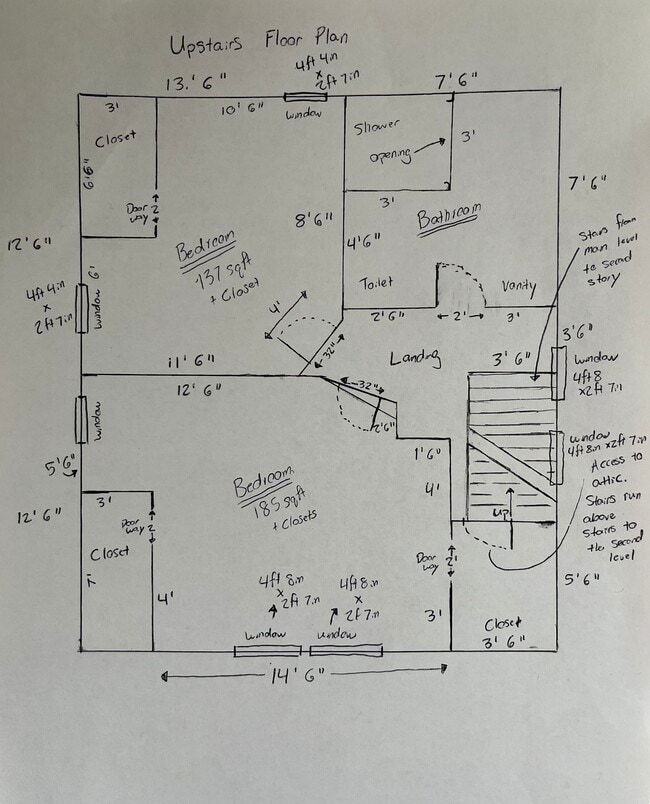 Upstairs Floor Plan
4ft 4in
x
2ft 7in
13.' 6"
7' 6"
3'
10' 6"
window
Closet
6'6"
Shower
opening
3'
3'
7' 6"
Door 2
way
8'6"
Bathroom
4'6"
Stairs from
main level
to second
story
12' 6"
Bedroom
137 sqft
+ Closet
6'
4ft 4in
x
2ft 7in
window
4'
Toilet
Vanity
2'6"
2'
3'
32"
Landing
3'6"
3' 6"
window
4ft 8
x2ft 7in
11' 6"
12' 6"
32"
2'6"
window
1'6"
window
4ft 8in x2ft 7in
Access to
attic.
Stairs run
above
stairs to
the second
level
5'6"
Bedroom
185 sqft
+ Closets
4'
12' 6"
3'
Door 2
way
up
Closet
7'
4'
Door 2'
way
5'6"
4ft 8in
x
2ft 7in
4ft 8in
x
2ft 7in
3'
Closet
3' 6"
window
window
14' 6"